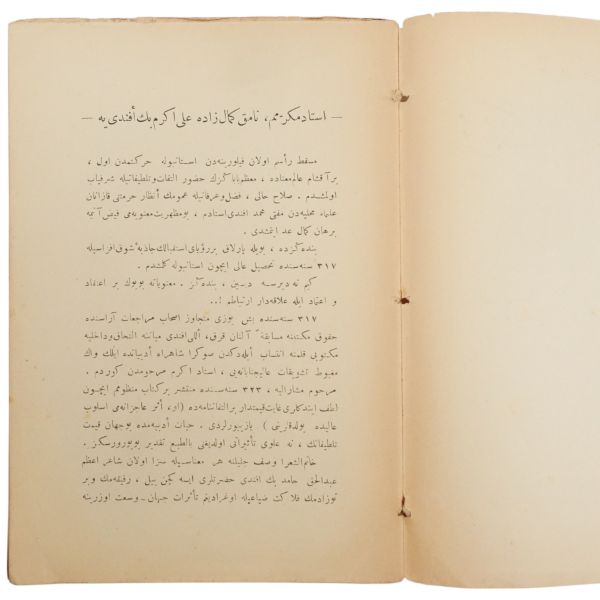 — استاد مكرّمم، نامق كمال زاده علی اكرم بك أفندی یه —
مسقط رأسم اولان فیلورینه‌دن استانبوله حركتمدن اول ،
بر آقشام عالم معناده ، معظم باباكزك حضور التفات و تلطیفاتیله شرفیاب
اولمشدم . صلاح حالی ، فضل و عرفانیله عمومك أنظار حرمتنی قازانان
علماء محلیه‌دن مفتی محمد افندی استادم ، بو مظهریت معنویه‌می فیض آتیمه
برهان كمال عد ایتمشدی .
بنده‌كزده ، بویله پارلاق بر رؤیای استقبالك جاذبهٔ شوق افزاسیله
٣١٧ سنه‌سنده تحصیل عالی ایچون استانبوله كلمشدم .
كیم نه دیرسه دیسین ، بنده‌كز ، معنویاته بویوك بر اعتقاد
و اعتماد ایله علاقه‌دار ارتباطم !..
٣١٧ سنه‌سنده بش یوزی متجاوز اصحاب مراجعات آراسنده
حقوق مكتبنه مسابقةً آلنان قرق، أللی افندی میاننه التحاق و داخلیه
مكتوبی قلمنه انتساب أیله‌دكدن صوكرا شاهراه أدبیاتده ایلك واك
مغبوط تشویقات عالیجنابانه‌یی ، استاد اكرم مرحومدن كوردم .
مرحوم مشارالیه ، ٣٢٣ سنه‌سنده منتشر بر كتاب منظومم ایچون
لطف ایتدكاری غایت قیمتدار بر التفاتنامه‌ده (او، أثر عاجزانه‌می اسلوب
عالیده بولدقارینی ) یازیورلردی . حیات أدبیه‌مده بوجهان قیمت
تلطیفاتك ، نه علوی تأثیراتی اولدیغنی بالطبع تقدیر بویورورسكز .
خاتم الشعرا وصف جلیلنه هر معناسیله سزا اولان شاعر اعظم
عبدالحق حامد بك افندی حضرتلری ایسه كچن ییل ، رفیقه‌مك و بر
نوزادمك فلاكت ضیاعیله اوغرادیغم تأثرات جهان ــ وسعت اوزرینه